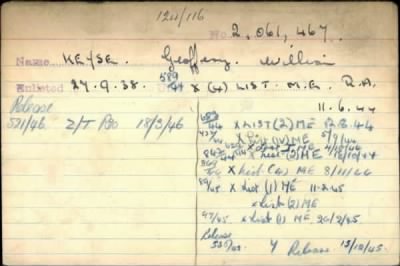 124/116
No. 2,061,467.
Name KEYSE. Geoffrey. William
Enlisted 27.9.38. 589/44 X (4) LIST. M.E. R.A.
11.6.44
Release
521/46 Z/T Pso 18/3/46
X LIST (2) ME 12.6.44
X List (IV) ME 5/9/44
X List (2) ME 18/10/44
X List (4) ME 8/11/44
89/45 X List (1) ME 11.2.45
X List (2) ME
97/45 X List (1) ME 20/2/45
Release
Y Release 13/10/45.